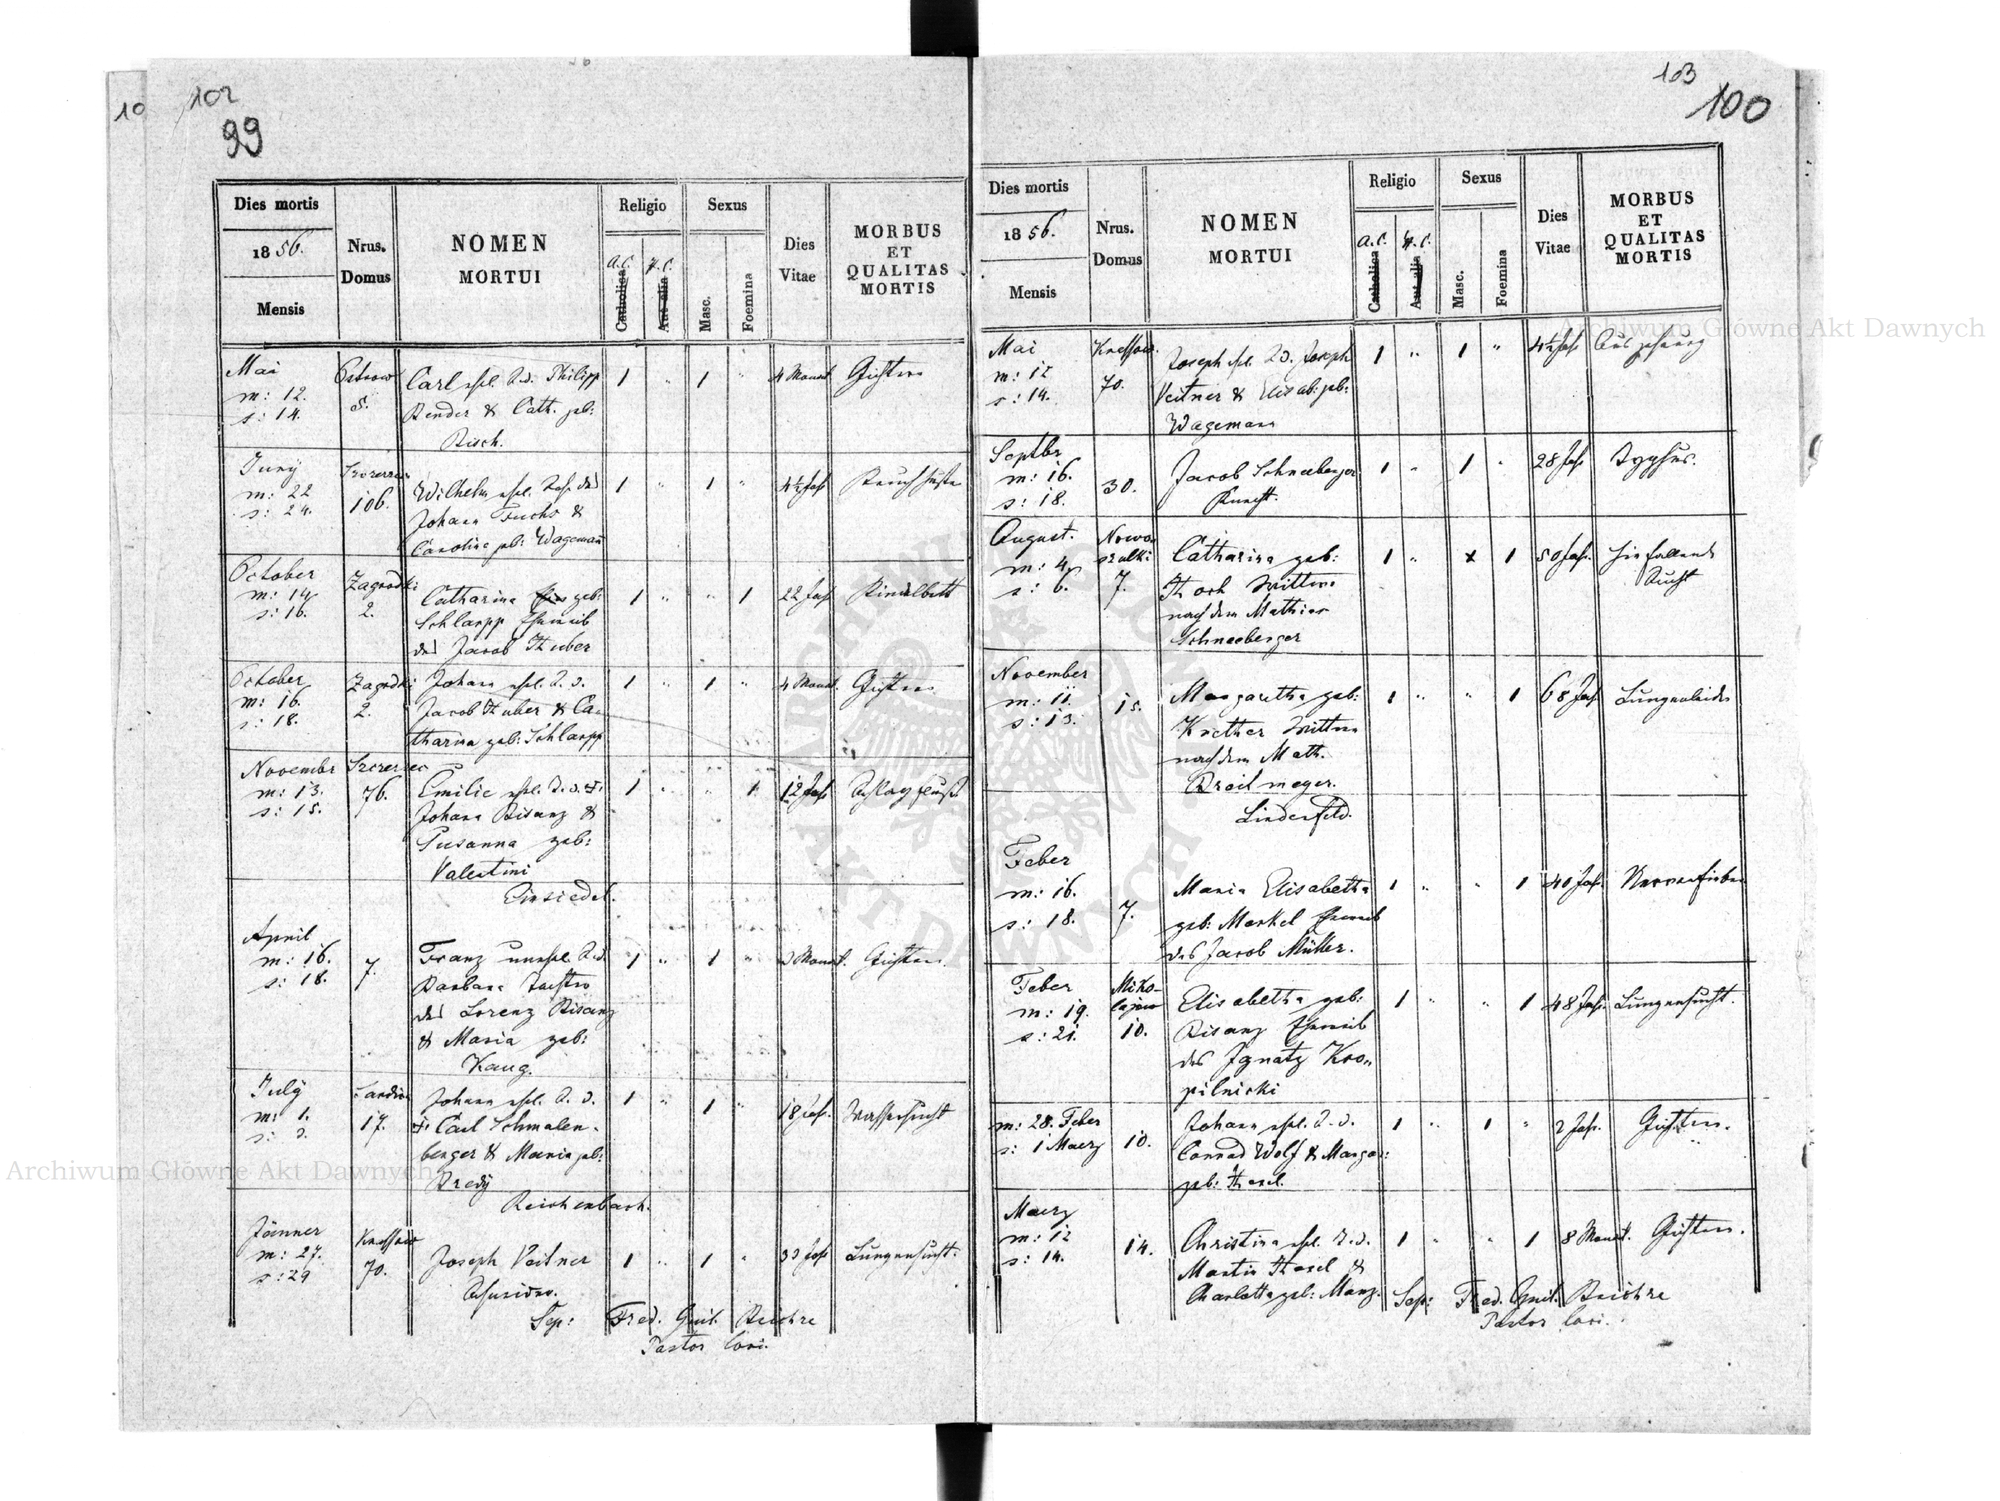 10
102
99
Dies mortis
1856.
Mensis
Nrus.
Domus
NOMEN
MORTUI
Religio
A.C.
H.C.
Catholica
Aut alia
Sexus
Masc.
Foemina
Dies
Vitae
MORBUS
ET
QUALITAS
MORTIS
Mai
m: 12.
s: 14.
Ostrow
Carl ehel. S. d. Philipp
Bender & Cath. geb:
Risch.
1 " 1 "
4 Monat
Gichtern
Juny
m: 22
s: 24.
106.
Wilhelm ehel. Sohn des
Johann Fuchs &
Caroline geb: Wagemann
1 " 1 "
4½ Jahr
October
m: 14
s: 16.
Zagrodki
2.
Catharina geb:
Schlapp Eheweib
des Jacob Huber
1 " " 1
22 Jahr
Kindelbett
October
m: 16.
s: 18.
Zagrodki
2.
Johann ehel. S. d.
Jacob Huber & Ca-
tharina geb: Schlapp
1 " 1 "
4 Monat.
Gichtern
Novembr
m: 13.
s: 15.
Szczerzec
76.
Emilie ehel. T. d.
Johann Bisanz &
Susanna geb:
Valentini
1 " " 1
12 Jahr
Schlagfluß
Einsiedel.
April
m: 16.
s: 18.
7.
Franz unehel. S. d.
Barbara Tochter
des Lorenz Bisanz
& Maria geb:
Kaug.
1 " 1 "
Monat.
Gichtern
July
m: 1.
s: 3.
17.
Johann ehel. S. d.
Carl Schmalen-
berger & Maria geb:
Bredy
1 " 1 "
18 Jahr.
Wassersucht
Reichenbach.
Jänner
m: 27.
s: 29
70.
Joseph Veitner
1 " 1 "
33 Jahr
Lungensucht.
Sep: Fred. Guil. Reichre
Pastor loci.
103
100
Dies mortis
1856.
Mensis
Nrus.
Domus
NOMEN
MORTUI
Religio
A.C.
H.C.
Catholica
Aut alia
Sexus
Masc.
Foemina
Dies
Vitae
MORBUS
ET
QUALITAS
MORTIS
Mai
m: 12
s: 14.
70.
Joseph ehel. S. d. Joseph
Veitner & Elisab: geb:
Wagemann
1 " 1 "
4½ Jahr
Auszehrung
Septbr
m: 16.
s: 18.
30.
Jacob Schneeberger
Knecht.
1 " 1 "
28 Jahr
Typhus.
August.
m: 4
s: 6.
Nowo-
sulki
7.
Catharina geb:
Wittwe
nach dem Mathias
Schneeberger
1 " x 1
50 Jahr.
Hinfallende
Sucht
November
m: 11.
s: 13.
15.
Margaretha geb:
Koether Wittwe
nach dem Math.
Breitmeyer.
1 " " 1
68 Jahr
Lungenleiden
Lindenfeld.
Feber
m: 16.
s: 18.
7.
Maria Elisabetha
geb: Merkel Eheweib
des Jacob Müller.
1 " " 1
40 Jahr.
Nervenfieber
Feber
m: 19.
s: 21.
Miko-
lajow
10.
Elisabetha geb:
Bisanz Eheweib
des Ignatz Kro-
pilnicki
1 " " 1
48 Jahr.
Lungensucht.
m: 28. Feber
s: 1 Maerz
10.
Johann ehel. S. d.
Conrad Wolf & Margar:
geb: Hesel.
1 " 1 "
2 Jahr.
Gichtern.
Maerz
m: 12
s: 14.
14.
Christina ehel. T. d.
Martin Hesel &
Charlotta geb: Manz.
1 " " 1
8 Monat.
Gichtern.
Sep: Fred. Guil. Reichre
Pastor loci.
Archiwum Główne Akt Dawnych
Archiwum Główne Akt Dawnych
ARCHIWUM GŁÓWNE
AKT DAWNYCH